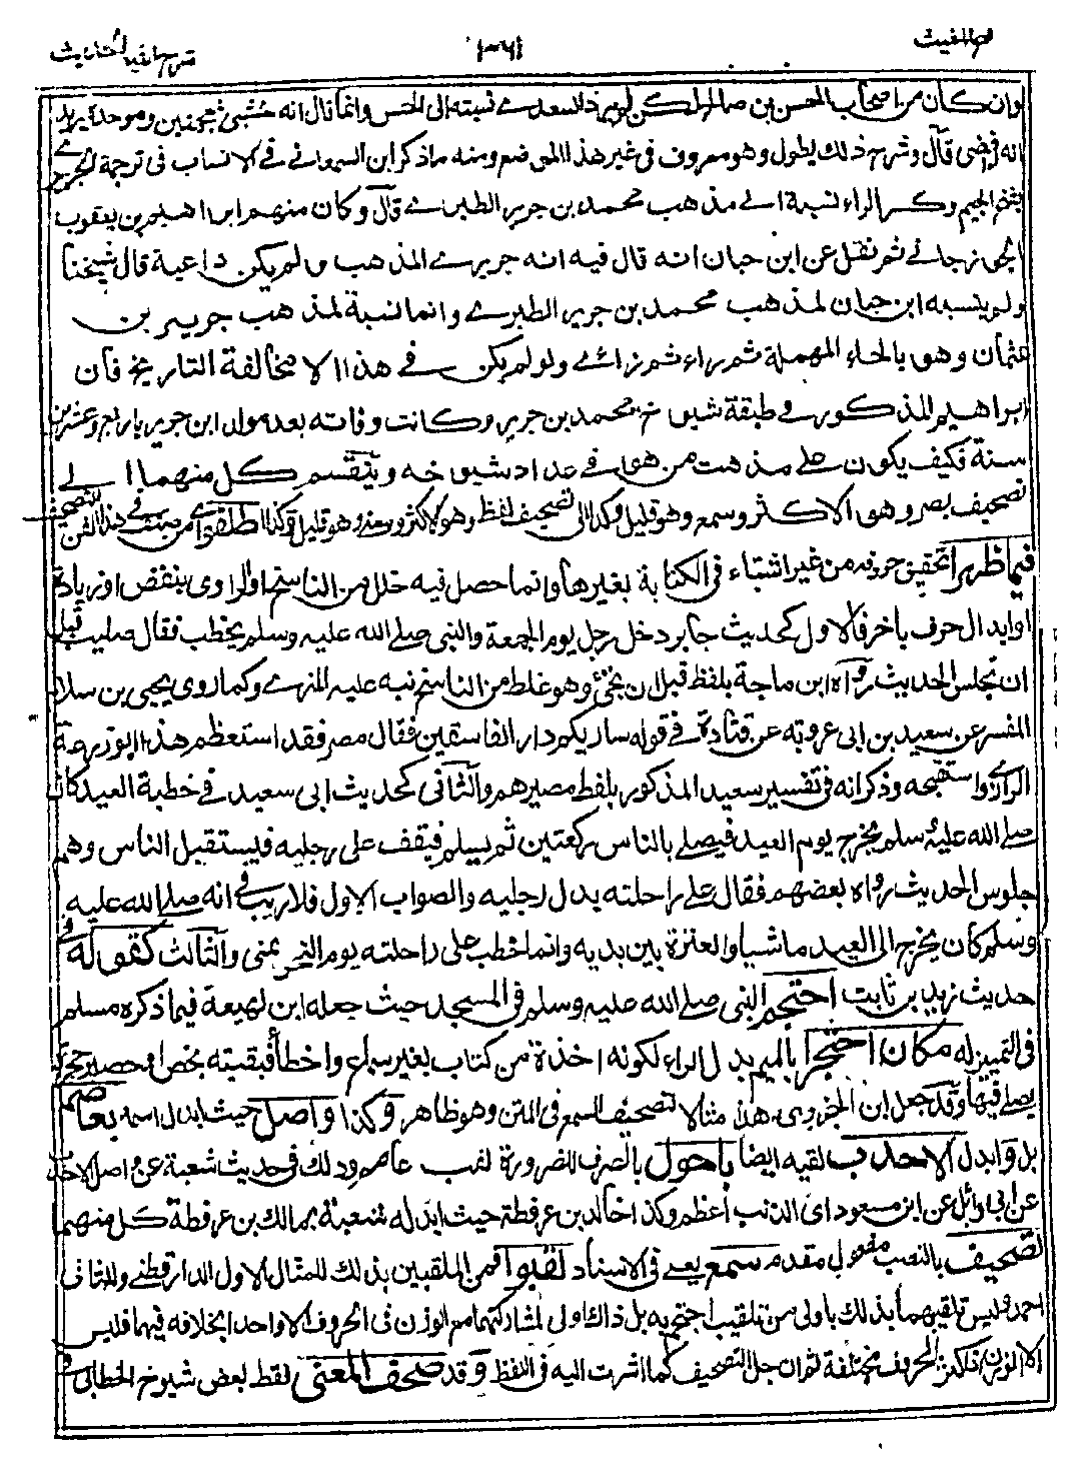 فتح المغيث ٣٦١ شرح الفية الحديث
وان كان من اصحاب الحسن بن صالح لكن لم يرد السعدى نسبته الى الحسن وانما قال انه خشبى بمعجمتين وموحدة يريد
انه رافضى قال وشرح ذلك يطول وهو معروف فى غير هذا الموضع ومنه ما ذكر ابن السمعانى فى الانساب فى ترجمة الجريرى
بفتح الجيم وكسر الراء نسبة الى مذهب محمد بن جرير الطبرى قال وكان منهم ابراهيم بن يعقوب
الجوزجانى ثم نقل عن ابن حبان انه قال فيه انه جريرى المذهب ولم يكن داعية قال شيخنا
ولم ينسبه ابن حبان لمذهب محمد بن جرير الطبرى وانما نسبة لمذهب جرير بن
عثمان وهو بالحاء المهملة ثم راء ثم زائى ولو لم يكن فى هذا الا مخالفة التاريخ فان
ابراهيم المذكور فى طبقة شيوخ محمد بن جرير وكانت وفاته بعد مولد ابن جرير باربع وعشرين
سنة فكيف يكون على مذهب من هو فى عداد شيوخه وينقسم كل منهما الى
تصحيف بصر وهو الاكثر وسمع وهو قليل وكذا الى تصحيف لفظ وهو الاكثر ومعنى وهو قليل وكذا اطلقوا من صنف فى هذا الفن التصحيف
فيما ظهر اتحقيق حروفه من غير اشتباه فى الكتابة بغيرها وانما حصل فيه خلل من الناسخ او الراوى بنقص او زيادة
او ابدال حرف باخر فالاول كحديث جابر دخل رجل يوم الجمعة والنبى صلى الله عليه وسلم يخطب فقال صليت قبل
ان تجلس الحديث رواه ابن ماجة بلفظ قبل ان تجئ وهو غلط من الناسخ نبه عليه المزى وكما روى يحيى بن سلام
المفسر عن سعيد بن ابى عروبة عن قتادة فى قوله ساريكم دار الفاسقين فقال مصر فقد استعظم هذا ابو زرعة
الرازى واستقبحه وذكر انه فى تفسير سعيد المذكور بلفظ مصيرهم والثانى كحديث ابى سعيد فى خطبة العيد كان
صلى الله عليه وسلم يخرج يوم العيد فيصلى بالناس ركعتين ثم يسلم فيقف على رجليه فيستقبل الناس وهم
جلوس الحديث رواه بعضهم فقال على راحلته بدل رجليه والصواب الاول فلا ريب فى انه صلى الله عليه
وسلم كان يخرج الى العيد ماشيا والعنزة بين يديه وانما خطب على راحلته يوم النحر بمنى والثالث كقوله فى
حديث زيد بن ثابت احتجم النبى صلى الله عليه وسلم فى المسجد حيث جعله ابن لهيعة فيما ذكره مسلم
فى التمييز له مكان احتجر ا بالميم بدل الراء لكونه اخذه من كتاب بغير سماع واخطأ فبقيته بخص او حصير حجرة
يصلى فيها وقد جعل ابن الجزرى هذا مثالا لتصحيف السمع فى المتن وهو ظاهر وكذا واصل حيث ابدل اسمه بعاصم
بل وابدل الاحدب لقبه ايضا باحول بالصرف للضرورة لقب عاصم وذلك فى حديث شعبة عن واصل الاحدب
عن ابى وائل عن ابن مسعود اى الذنب اعظم وكذا خالد بن عرفطة حيث ابدله شعبة بمالك بن عرفطة كل منهما
تصحيف بالنصب مفعول مقدم سمع يعنى فى الاسناد لقبوا فمن الملقبين بذلك للمثال الاول الدارقطنى وللثانى
احمد وليس تلقيبهما بذلك باولى من تلقيب احتجم به بل ذاك اولى لمشاركتهما مع الوزن فى الحروف الا واحدا بخلافه فيهما فليس
الا الوزن فلكن الحروف مختلفة ثم ان جل التصحيف كما اشرت اليه فى اللفظ وقد صحف المعنى فقط بعض شيوخ الخطابى فى